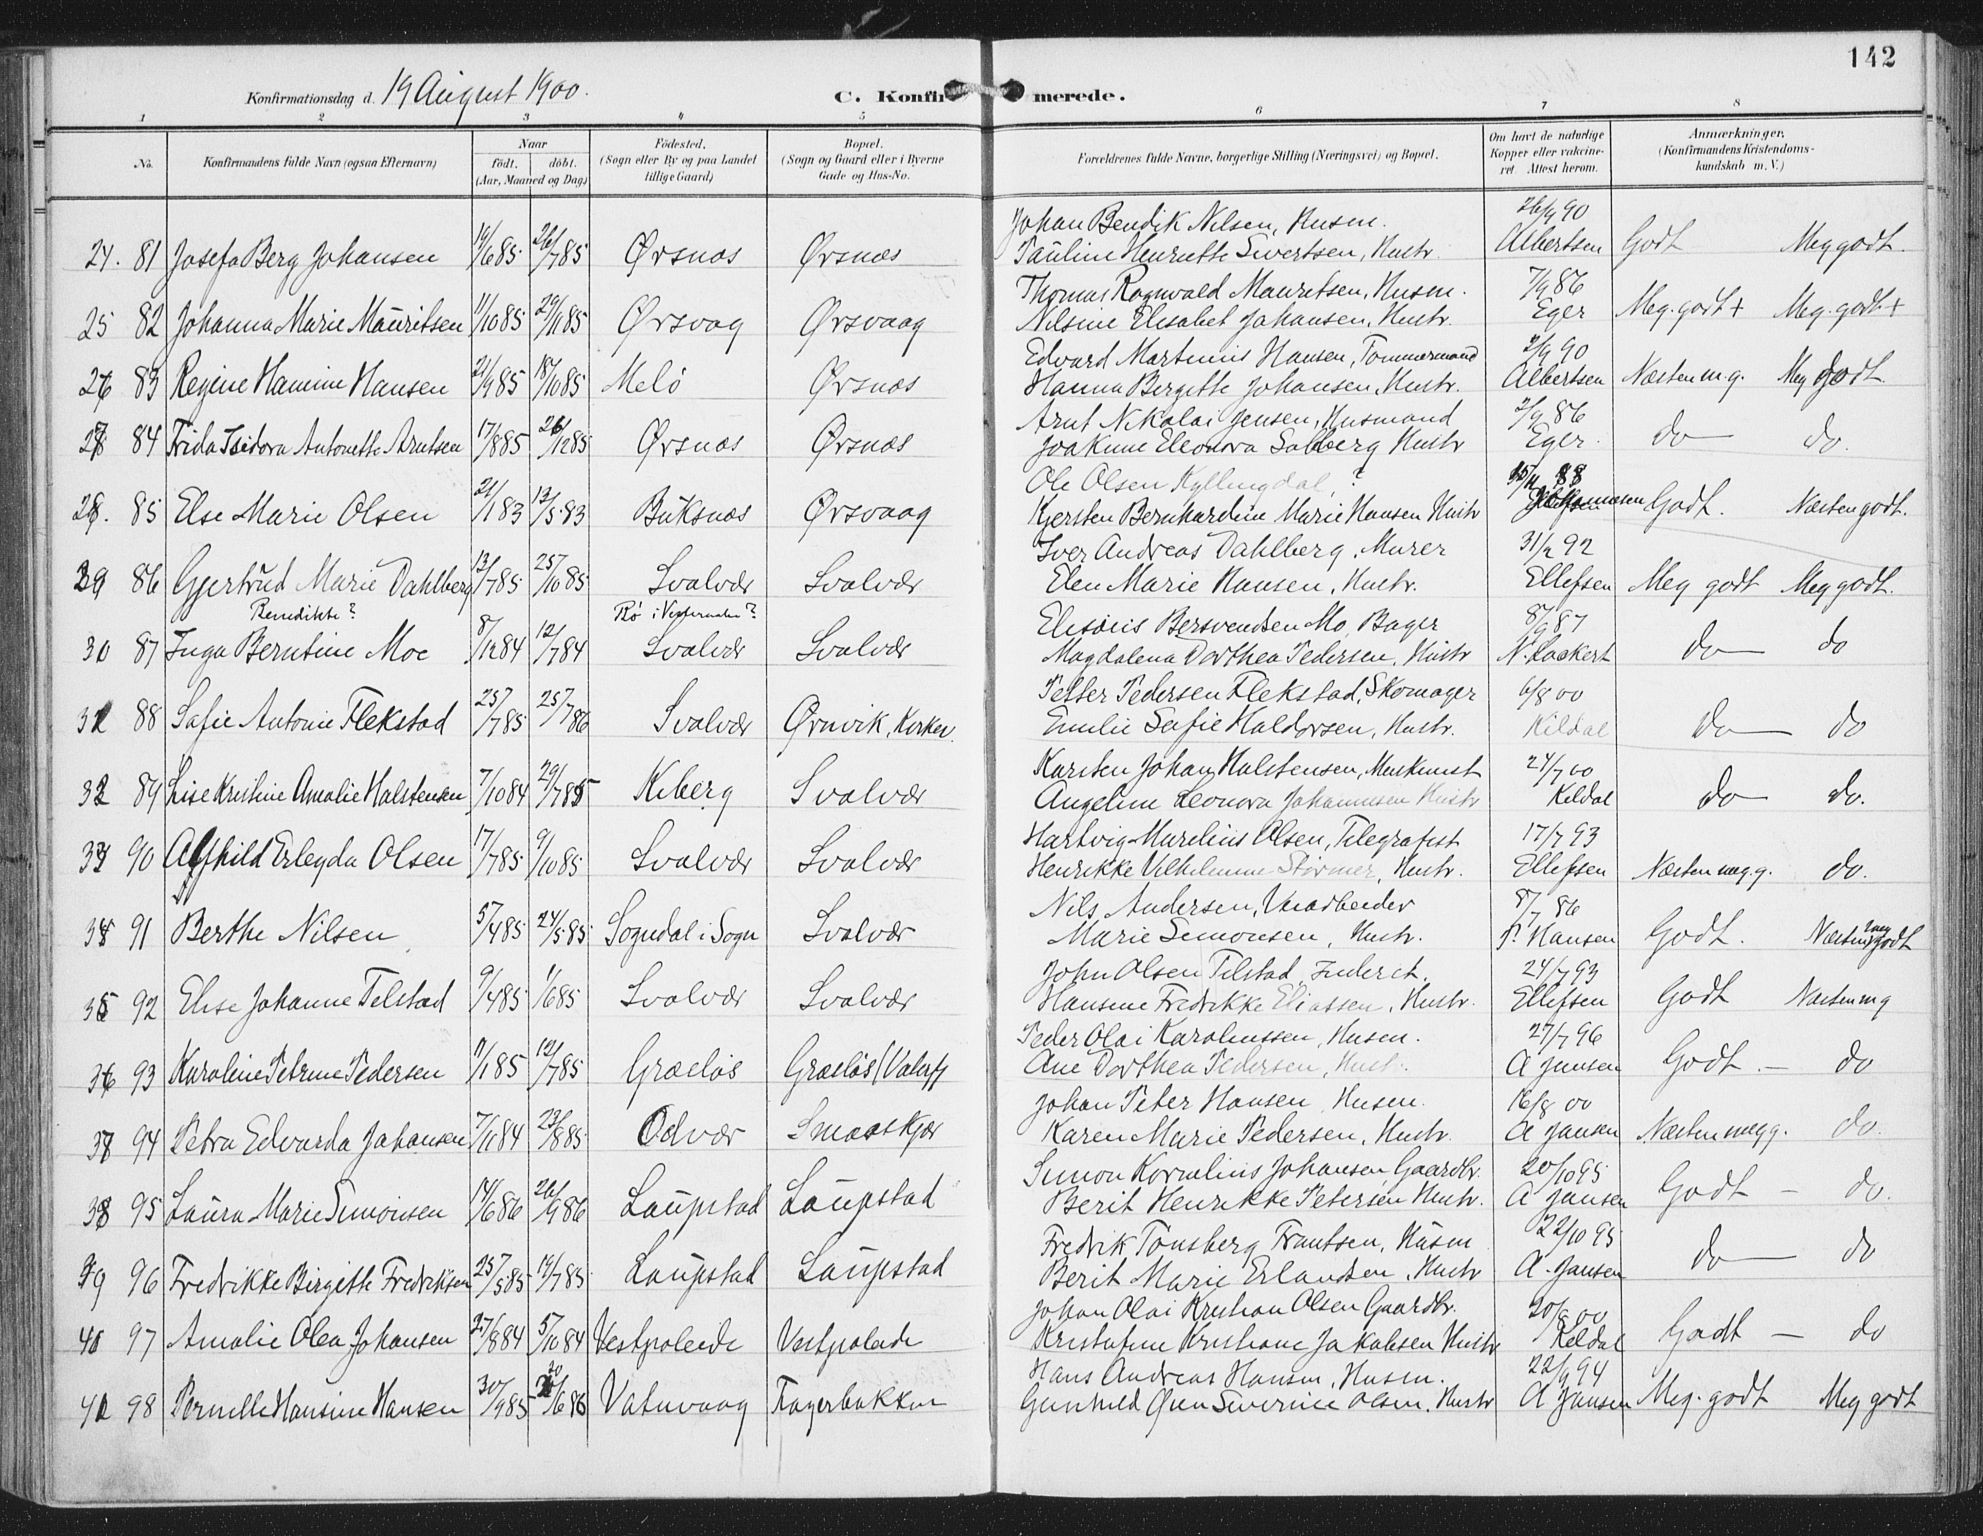 142
Konfirmationsdag d. 19 August 1900.
C. Konfir merede.
1 2 3 4 5 6 7 8
No. Konfirmandens fulde Navn (ogsaa Efternavn) Naar født. døbt. (Aar, Maaned og Dag) Fødested. (Sogn eller By og paa Landet tillige Gaard) Bopæl. (Sogn og Gaard eller i Byerne Gade og Hus-No. Forældrenes fulde Navne, borgerlige Stilling (Næringsvei) og Bopæl. Om havt de naturlige Kopper eller vakcineret Attest herom. Anmærkninger. (Konfirmandens Kristendomskundskab m. V.)
Johan Bendik Nilsen, Husm. 26/9 90
24. 81 Josefa Berg Johansen 19/6 85 26/7 85 Ørsnæs Ørsnæs Pauline Henriette Sivertsen, Hustr. Albertsen Godt Meg godt.
Thomas Ragnvald Mauritsen, Husm. 7/9 86
25 82 Johanna Marie Mauritsen 11/10 85 29/11 85 Ørsvaag Ørsvaag Nilsine Elisabet Johansen, Hustr. Eger Meg. godt + Meg. godt +
Edvard Martinus Hansen, Tømmermand 2/9 90
26 83 Regine Hansine Hansen 21/9 85 18/10 85 Melö Ørsnæs Hanna Bergitte Johansen, Hustr. Albertsen Næsten m.g. Meg godt
Arnt Nikolai Jensen, Husmand 2/9 86
27 84 Frida Isidora Antonette Arntsen 17/8 85 26/12 85 Ørsnæs Ørsnæs Joakime Eleonora Solberg Hustr Eger. do do.
Ole Olsen Kyllingdal, ? 88
28. 85 Else Marie Olsen 21/1 83 13/5 83 Buksnæs Ørsvaag Kjersten Bernhardine Marie Hansen Hustr Godt. Næsten godt.
Iver Andreas Dahlberg, Murer 31/12 92
29 86 Gjertrud Marie Dahlberg 13/7 85 25/10 85 Svolvær Svolvær Elen Marie Hansen, Hustr. Ellefsen Meg godt Meg godt.
Benedikte? Bö i Vesteraalen? Elisæus Bersvendsen Mo, Bager 8/9 87
30 87 Inga Berntine Moe 8/12 84 12/7 84 Svolvær Svolvær Magdalena Dorthea Pedersen, Hustr N. Lockert do do
Petter Pedersen Flekstad, Skomager 6/8 00
31 88 Sofie Antonie Flekstad 25/7 85 25/7 86 Svolvær Ørnvik, Kirkev. Emilie Sofie Haldorsen, Hustr. Kildal do do
Karsten Johan Halstensen, Maskinist 24/7 00
32 89 Lise Kristine Amalie Halstensen 7/10 84 29/7 85 Kiberg Svolvær Angeline Leonora Johannesen Hustr Kildal do do.
Hartvig Marelius Olsen, Telegrafist 17/7 93
33 90 Alfhild Erleyda Olsen 17/7 85 9/10 85 Svolvær Svolvær Henrikke Vilhelmine Størmer, Hustr. Ellefsen Næsten meg.g. do.
Nils Andersen, Vararbeider 8/7 86
34 91 Berthe Nilsen 5/4 85 24/5 85 Sogndal i Sogn Svolvær Marie Simonsen, Hustr. P. Hansen Godt. Næsten meg godt
John Olsen Telstad, Inderst. 24/7 93
35 92 Elise Johanne Telstad 9/4 85 1/6 85 Svolvær Svolvær Hansine Fredrikke Eliassen, Hustr. Ellefsen Godt Næsten m g
Peder Olai Karoliussen, Husm. 27/7 96
36 93 Karoline Petrine Pedersen 11/1 85 12/7 85 Græløs Græløs (Valerf) Ane Dorthea Pedersen, Hustr. A Jansen Godt – do
Johan Peter Hansen, Husm. 16/8 00
37 94 Petra Edvarda Johansen 7/11 84 23/8 85 Odvær Smaaskjær Karen Marie Pedersen, Hustr. A Jansen Næsten megg. do.
Simon Kornelius Johansen, Gaardbr. 20/10 95
38 95 Laura Marie Simonsen 14/6 86 26/9 86 Laupstad Laupstad Berit Henrikke Petersen Hustr. A Jansen Godt – do.
Fredrik Tönsberg Frantsen, Husm 22/10 95
39 96 Fredrikke Birgitte Fredriksen 25/5 85 19/7 85 Laupstad Laupstad Berit Marie Erlandsen, Hustr A. Jansen do do
Johan Olai Kristian Olsen Gaardbr. 20/8 00
40 97 Amalie Olea Johansen 27/8 84 5/10 84 Vestpoleide Vestpoleide Kristofine Kristiane Jakobsen Hustr Kildal Godt – do
Hans Andreas Hansen, Husm. 22/9 94
41 98 Pernille Hansine Hansen 30/9 85 20/6 86 Vatnvaag Fagerbakken Gunhild Severine Olsen, Hustr A Jansen Meg. godt Meg godt